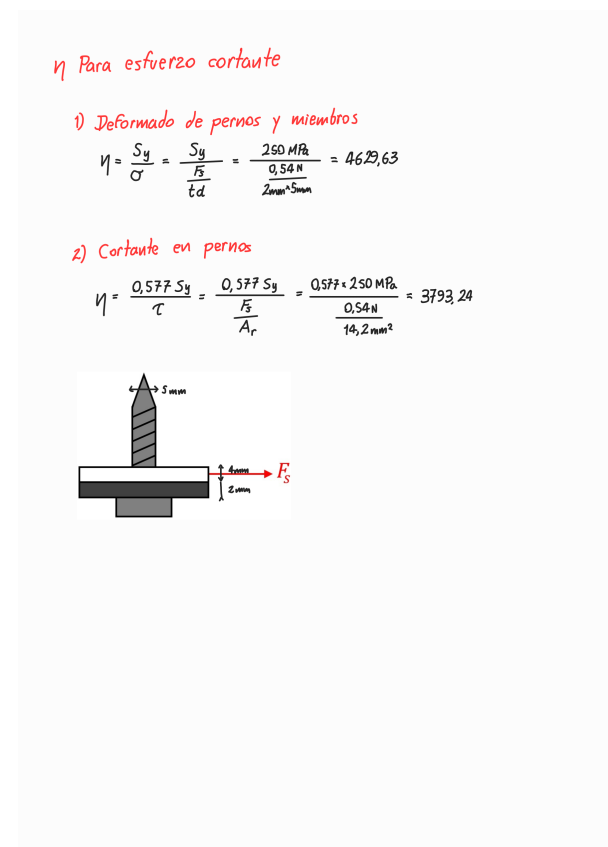 η Para esfuerzo cortante
1) Deformado de pernos y miembros
η = Sy/σ = Sy/(Fs/td) = 250 MPa/(0,54 N/2mm*5mm) = 4629,63
2) Cortante en pernos
η = 0,577 Sy/τ = 0,577 Sy/(Fs/Ar) = 0,577 * 250 MPa/(0,54 N/14,2 mm²) = 3793,24
5 mm
4mm
Fs
2 mm